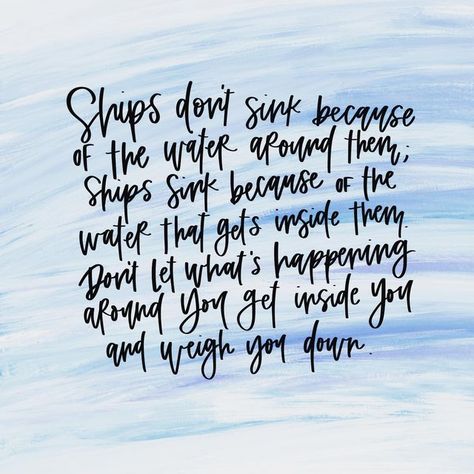 Ships don't sink because
of the water around them;
Ships sink because of the
water that gets inside them.
Don't let what's happening
around you get inside you
and weigh you down.